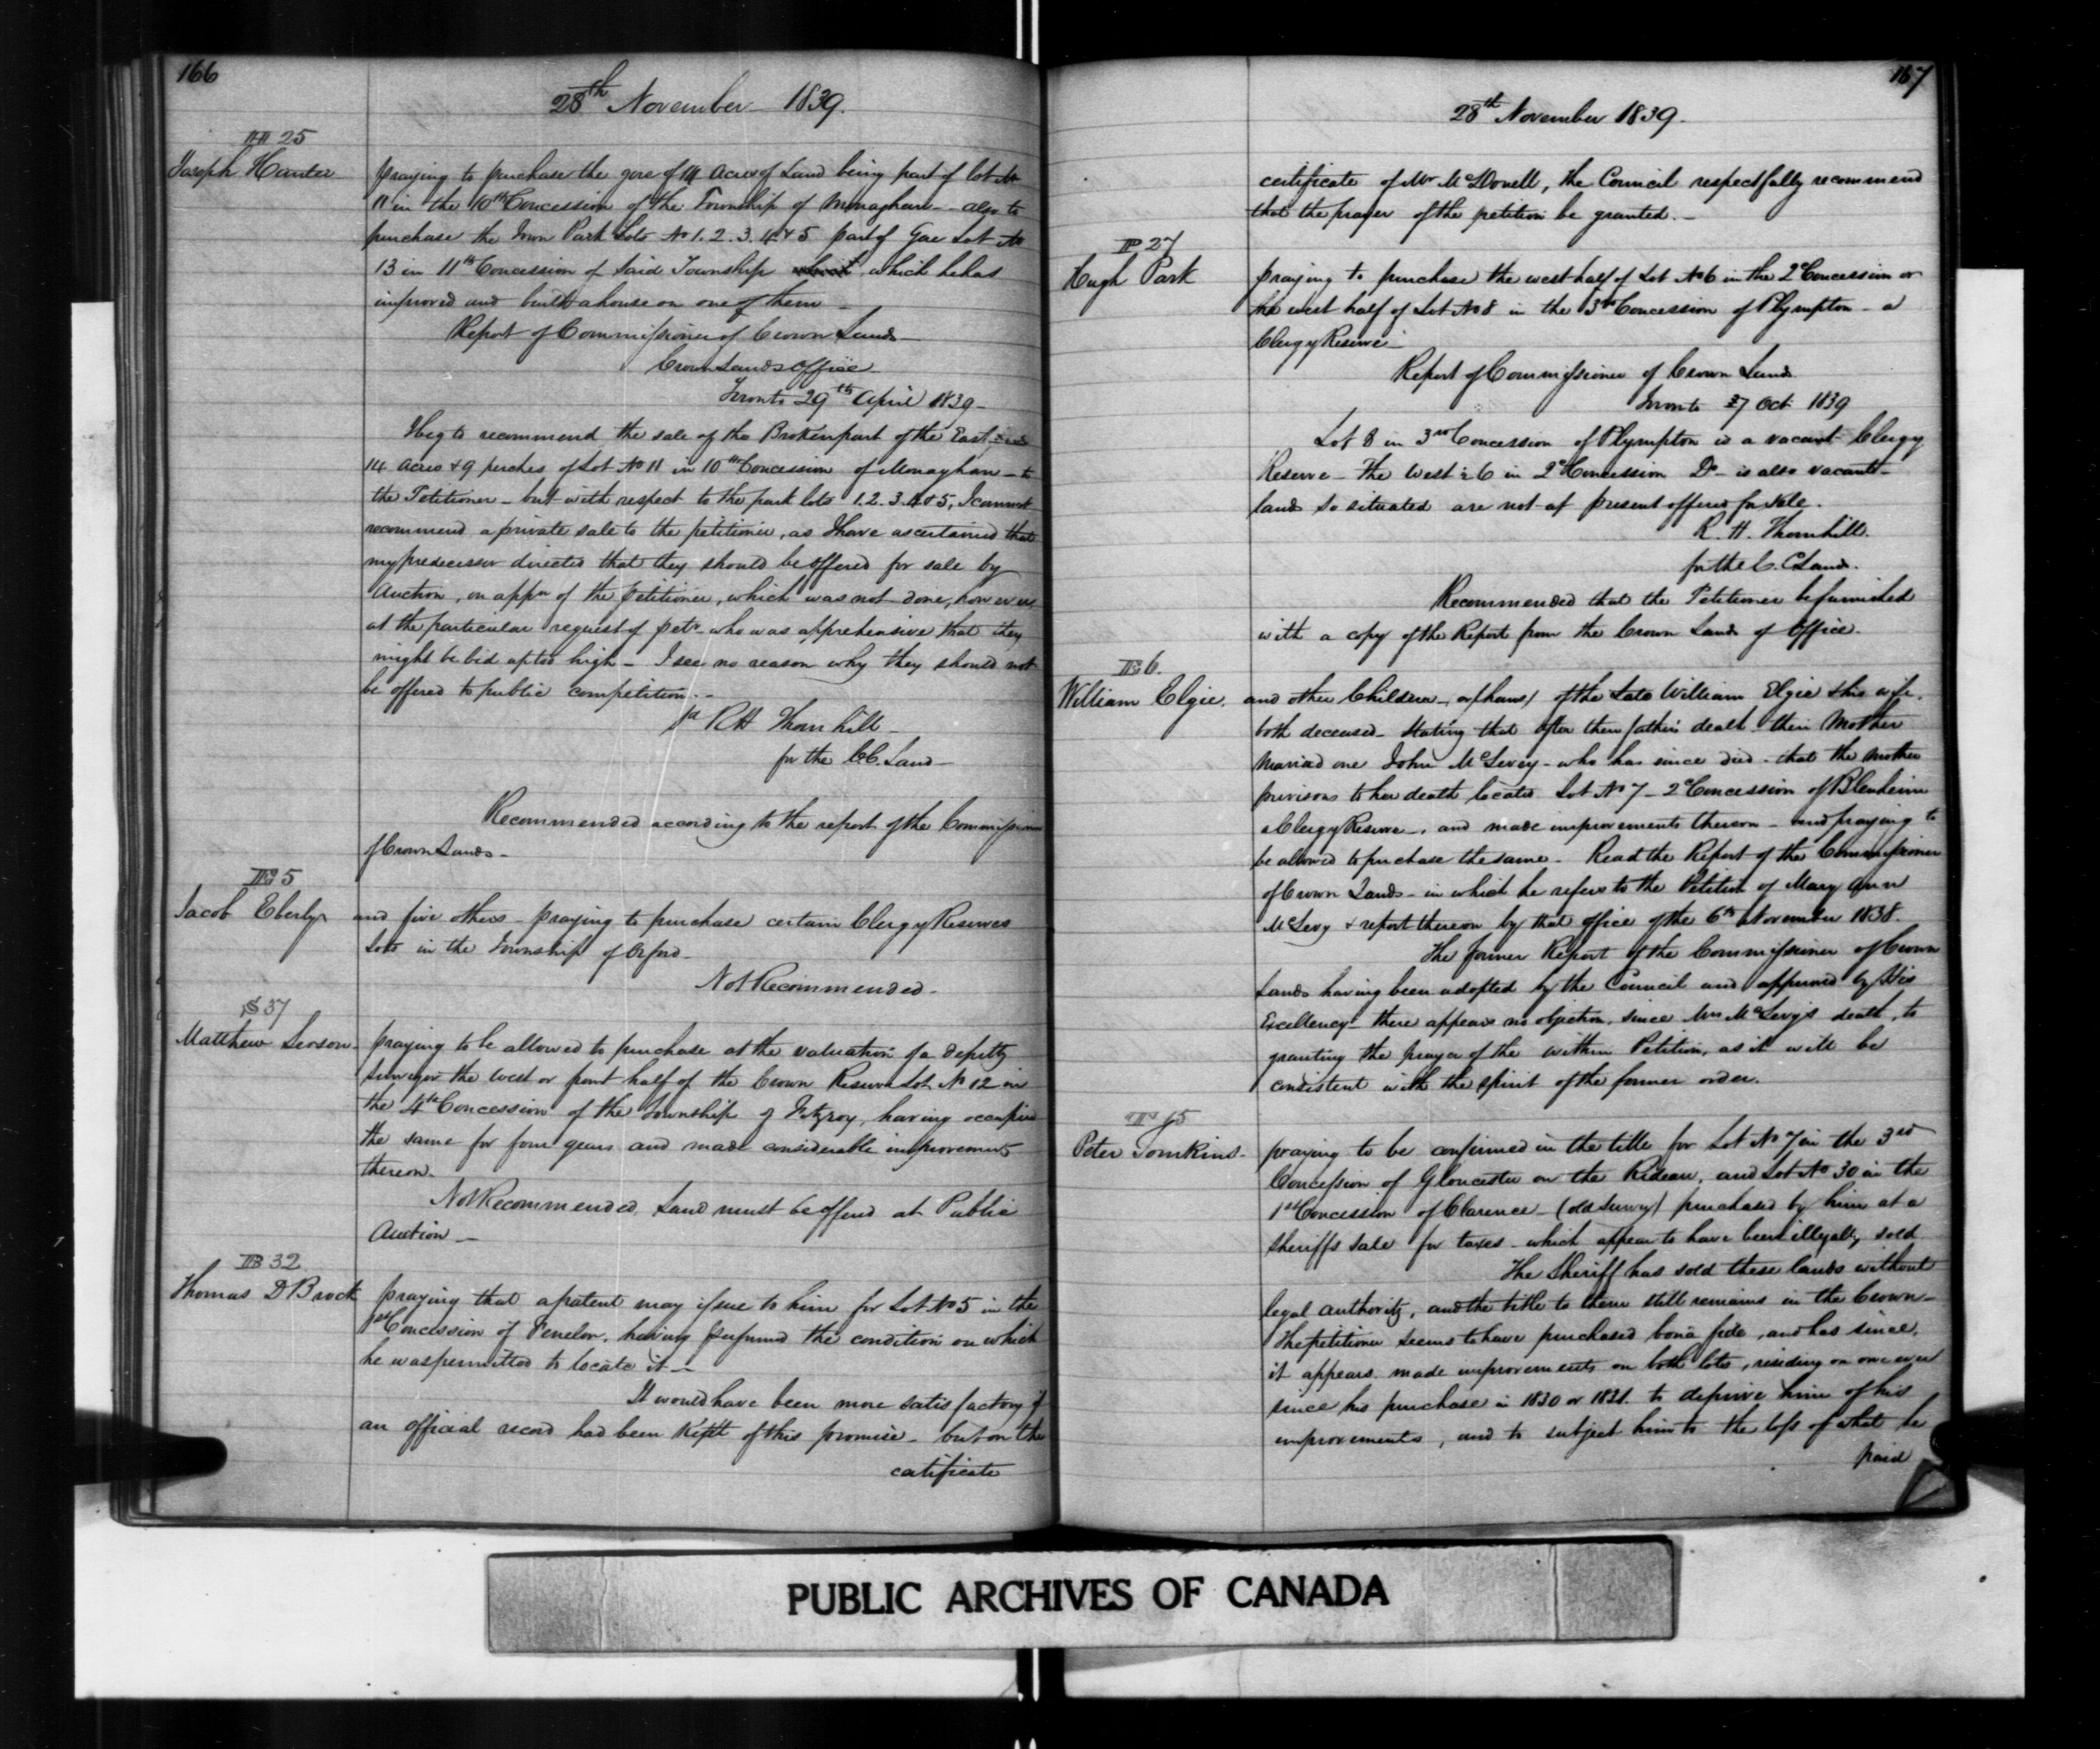 166
28th November 1839.
HH 25
Joseph Hunter
praying to purchase the gore of 14 acres of Land being part of lot No
11 in the 10th Concession of the Township of Monaghan - also to
purchase the Town Park Lots No 1. 2. 3. 4 & 5 part of Gore Lot No
13 in 11th Concession of said Township which which he has
improved and built a house on one of them -
Report of Commissioner of Crown Lands -
Crown Lands Office
Toronto 29th April 1839 -
I beg to recommend the sale of the Broken part of the East
14 acres & 9 perches of Lot No 11 in 10th Concession of Monaghan - to
the Petitioner - but with respect to the park lots 1. 2. 3. 4 & 5, I cannot
recommend a private sale to the petitioner, as I have ascertained that
my predecessor directed that they should be offered for sale by
Auction, on appn of the petitioner, which was not done, however
at the particular request of petr who was apprehensive that they
might be bid up too high - I see no reason why they should not
be offered to public competition. -
R H Thornhill -
for the C.C. Land -
Recommended according to the report of the Commissioner
of Crown Lands -
5
Jacob Eberly
and five others - praying to purchase certain Clergy Reserves
Lots in the Township of Orford -
Not Recommended -
37
Matthew Leeson -
praying to be allowed to purchase at the valuation of a deputy
surveyor the west or front half of the Crown Reserve Lot No 12 in
the 4th Concession of the Township of Fitzroy, having occupied
the same for four years and made considerable improvements
thereon -
Not Recommended, Land must be offered at Public
Auction -
32
Thomas D Brock
praying that a patent may issue to him for Lot No 5 in the
1st Concession of Fenelon, having performed the condition on which
he was permitted to locate it -
It would have been more satisfactory if
an official record had been kept of this promise - but on the
certificate
167
28th November 1839.
certificate of Mr McDonell, the Council respectfully recommend
that the prayer of the petition be granted. -
27
Hugh Park
praying to purchase the west half of Lot No 6 in the 2d Concession or
the west half of Lot No 8 in the 3rd Concession of Plympton - a
Clergy Reserve -
Report of Commissioner of Crown Lands
Toronto 27 Oct 1839
Lot 8 in 3rd Concession of Plympton is a vacant Clergy
Reserve - The West ½ 6 in 2d Concession Do - is also vacant -
lands so situated are not at present offered for sale.
R. H. Thornhill.
for the C. C Lands.
Recommended that the Petitioner be furnished
with a copy of the Report from the Crown Lands of Office.
6.
William Elgie.
and other Children, orphans / of the late William Elgie & his wife.
both deceased - stating that after their father's death their Mother
married one John McLevey - who has since died - that the mother
previous to her death located Lot No 7 - 2d Concession of Blenheim
a Clergy Reserve -, and made improvements thereon - and praying to
be allowed to purchase the same - Read the Report of the Commissioner
of Crown Lands - in which he refers to the Petition of Mary Ann
McLevy & report thereon by that office of the 6th November 1838.
The former Report of the Commissioner of Crown
Lands having been adopted by the Council and approved by His
Excellency - there appears no objection, since Mrs McLevy's death, to
granting the prayer of the within Petition, as it will be
consistent with the spirit of the former order.
15
Peter Tomkins -
praying to be confirmed in the title for Lot No 7 in the 3rd
Concession of Gloucester on the Rideau, and Lot No 30 in the
1st Concession of Clarence - (old survey) purchased by him at a
Sheriffs sale for taxes - which appear to have been illegally sold
The Sheriff has sold these lands without
legal authority, and the title to them still remains in the Crown -
The petitioner seems to have purchased bona fide, and has since,
it appears made improvements on both lots, residing on one ever
since his purchase in 1830 or 1831. to deprive him of his
improvements, and to subject him to the loss of what he
paid
PUBLIC ARCHIVES OF CANADA